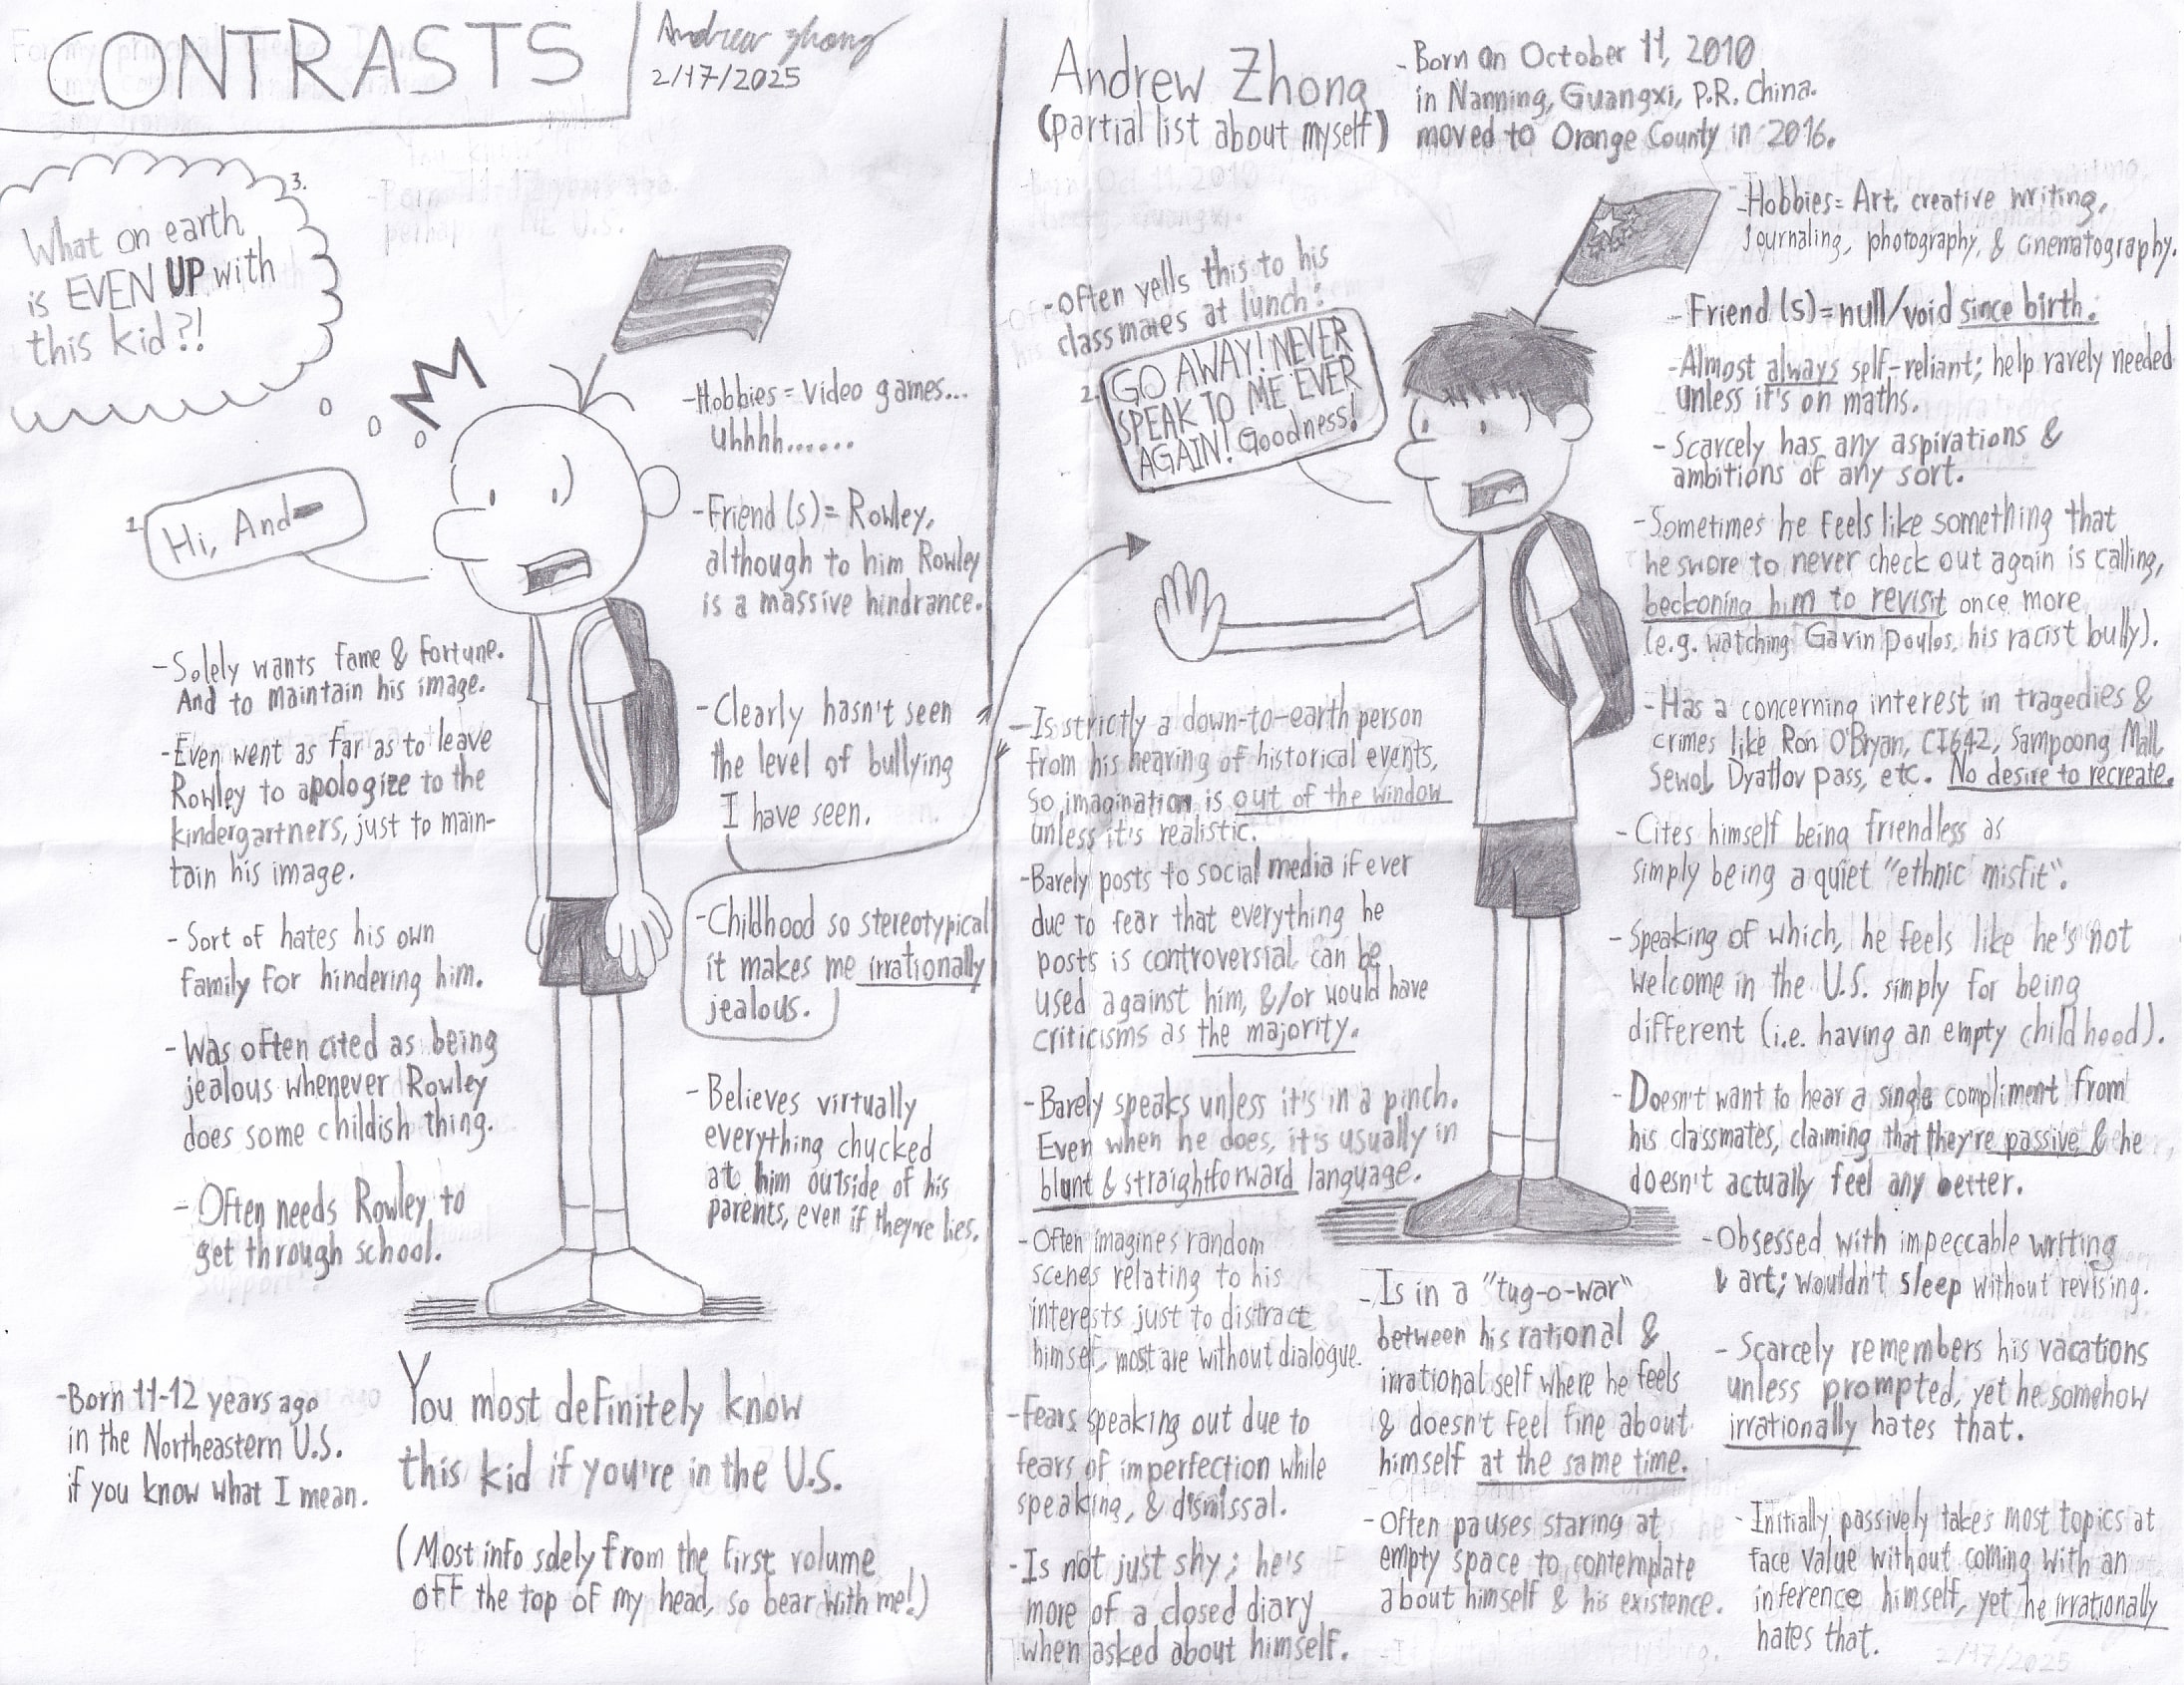 CONTRASTS
Andrew Zhong
2/17/2025
3.
What on earth
is EVEN UP with
this kid?!
1.
Hi, And-
-Hobbies = Video games...
Uhhhh......
-Friend (s) = Rowley,
although to him Rowley
is a massive hindrance.
-Solely wants fame & fortune.
And to maintain his image.
-Even went as far as to leave
Rowley to apologize to the
kindergartners, just to main-
tain his image.
- Sort of hates his own
family for hindering him.
-Was often cited as being
jealous whenever Rowley
does some childish thing.
- Often needs Rowley to
get through school.
-Clearly hasn't seen
the level of bullying
I have seen.
-Childhood so stereotypical
it makes me irrationally
jealous.
-Believes virtually
everything chucked
at him outside of his
parents, even if they're lies.
-Born 11-12 years ago
in the Northeastern U.S.
if you know what I mean.
You most definitely know
this kid if you're in the U.S.
(Most info solely from the first volume
off the top of my head, so bear with me!)
Andrew Zhong
(partial list about myself)
-Born on October 11, 2010
in Nanning, Guangxi, P.R. China.
moved to Orange County in 2016.
-often yells this to his
classmates at lunch:
2.
GO AWAY! NEVER
SPEAK TO ME EVER
AGAIN! Goodness!
-Hobbies= Art, creative writing,
Journaling, photography, & cinematography.
-Friend (s) = null/void since birth.
-Almost always self-reliant; help rarely needed
unless it's on maths.
-Scarcely has any aspirations &
ambitions of any sort.
-Sometimes he feels like something that
he swore to never check out again is calling,
beckoning him to revisit once more
(e.g. watching Gavin Poulos, his racist bully).
-Has a concerning interest in tragedies &
crimes like Ron O'Bryan, CI642, Sampoong Mall,
Sewol, Dyatlov pass, etc. No desire to recreate.
-Cites himself being friendless as
simply being a quiet "ethnic misfit".
-Speaking of which, he feels like he's not
welcome in the U.S. simply for being
different (i.e. having an empty childhood).
-Doesn't want to hear a single compliment from
his classmates, claiming that they're passive & he
doesn't actually feel any better.
-Obsessed with impeccable writing
& art; wouldn't sleep without revising.
-Scarcely remembers his vacations
unless prompted, yet he somehow
irrationally hates that.
-Initially passively takes most topics at
face value without coming with an
inference himself, yet he irrationally
hates that.
-Is strictly a down-to-earth person
from his hearing of historical events,
so imagination is out of the window
unless it's realistic.
-Barely posts to social media if ever
due to fear that everything he
posts is controversial, can be
used against him, &/or would have
criticisms as the majority.
-Barely speaks unless it's in a pinch.
Even when he does, it's usually in
blunt & straightforward language.
-Often imagines random
scenes relating to his
interests just to distract
himself, most are without dialogue.
-Fears speaking out due to
fears of imperfection while
speaking, & dismissal.
-Is not just shy; he's
more of a closed diary
when asked about himself.
-Is in a "tug-o-war"
between his rational &
irrational self where he feels
& doesn't feel fine about
himself at the same time.
-Often pauses staring at
empty space to contemplate
about himself & his existence.